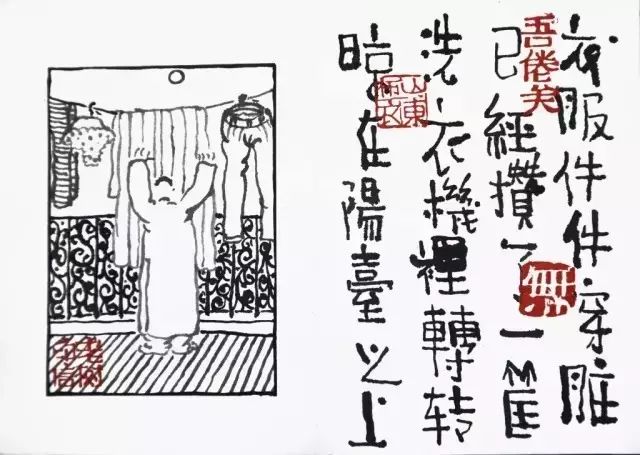 衣服件件穿脏
已經攢了一筐
洗衣機裡轉转
晾在陽臺之上
吾倦矣
無
山東布衣
老树